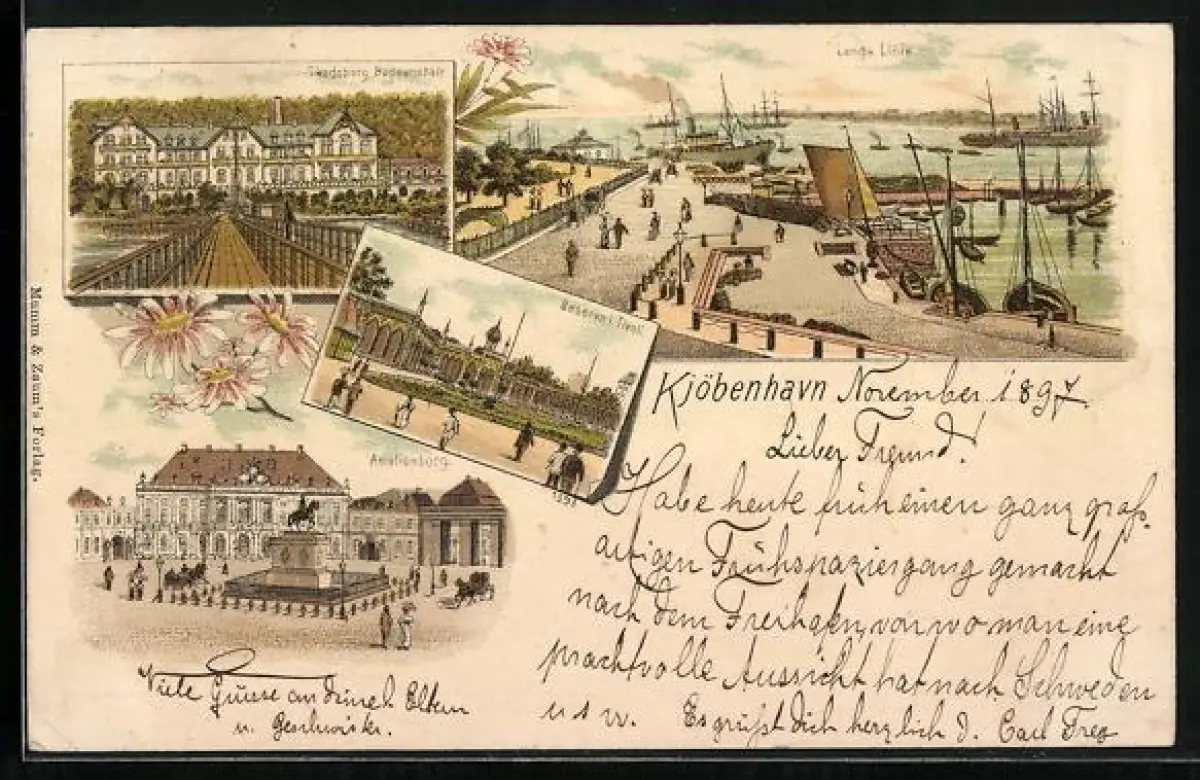 Skodsborg Badeanstalt
Lange Linie
Basaren i Tivoli
Amalienborg
Mumm & Zaum's Forlag.
Kjöbenhavn November 1897.
Lieber Freund!
Habe heute früh einen ganz groß-
artigen Frühspaziergang gemacht
nach dem Freihafen, von wo man eine
prachtvolle Aussicht hat nach Schweden
u s w. Es grüßt Dich herzlich D. Carl
Viele Grüsse an deine Eltern
u. Geschwister.